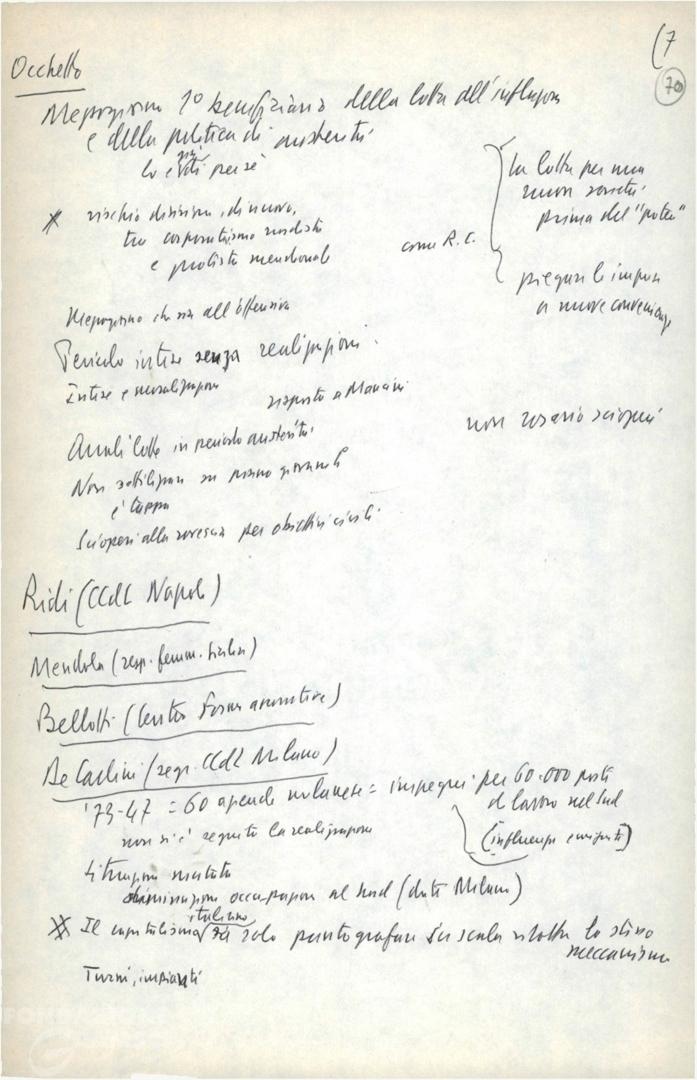 (7
70
Occhetto
Mezzogiorno 1° beneficiario della lotta all'inflazione
e della politica di austerità
lo è di per sè
* rischio divisione, di nuovo,
tra corporativismo nordista
e protesta meridionale
come R.C.
la lotta per una
nuova società
prima del "potere"
piegare le imprese
a nuove convenienze
Mezzogiorno che sia all'offensiva
Pericolo intese senza realizzazioni
Intese e moralizzazione
risposta a Mancini
Quali lotte in periodo austerità
non rosario scioperi
Non sottilizzare su piano giovanile
è tappa
Scioperi alla rovescia per obiettivi civili
Ridi (CCdL Napoli)
Mendola (resp. femm. Sicilia)
Bellotti (Centro forme associative)
De Carlini (segr. CCdL Milano)
'73-47 = 60 aziende milanesi = impegni per 60.000 posti
di lavoro nel Sud
non si è seguita la realizzazione
(influenza emigrati)
Situazione mutata
diminuzione occupazione al Sud (date Milano)
* Il capitalismo italiano sa solo pantografare su scala ridotta lo stesso
meccanismo
Turni, impianti